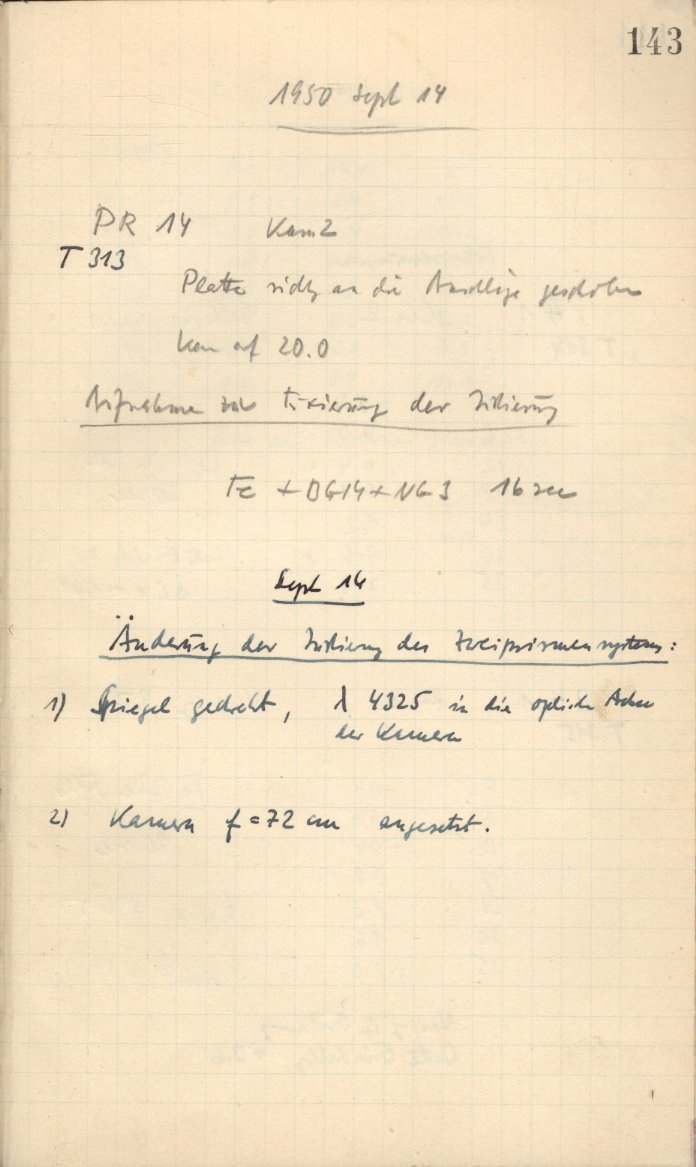 143
1950 Sept 14
PR 14 Kam 2
T 313
Platte richtig an die Anschläge geschoben
Kam auf 20.0
Aufnahme zur Fixierung der Justierung
Fe + BG14 + NG3 16 sec
Sept 14
Änderung der Justierung des Zweiprismensystems:
1) Spiegel gedreht, λ 4325 in die optische Achse
der Kamera
2) Kamera f = 72 cm angesetzt.